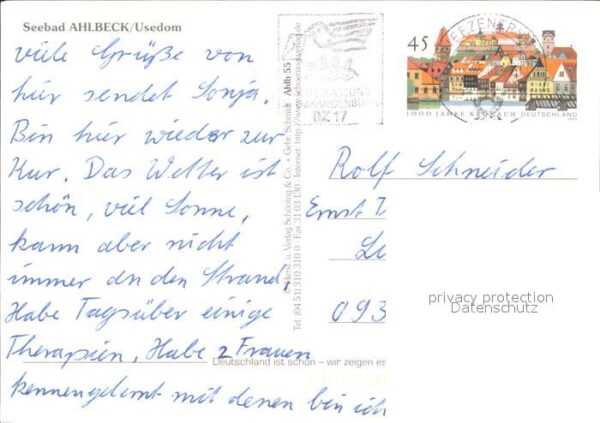 Seebad AHLBECK/Usedom
viele Grüße von
hier sendet Sonja.
Bin hier wieder zur
Kur. Das Wetter ist
schön, viel Sonne,
kann aber nicht
immer an den Strand,
Habe Tagsüber einige
Therapien, Habe 2 Frauen
kennengelernt mit denen bin ich
Ahlb 55
Tel. (04 51) 310 310 0 Fax 31 03 130 - Internet: http://
Deutschland ist schön – wir zeigen es
BZ 17
45
1000 JAHRE KRONACH DEUTSCHLAND
Rolf Schneider
Ernst T
093
privacy protection
Datenschutz